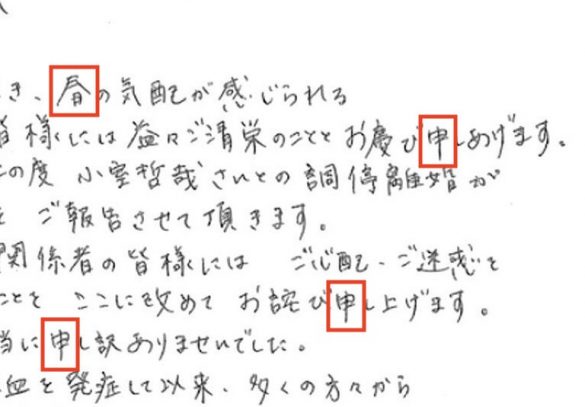 き、春の気配が感じられる
皆様には益々ご清栄のこととお慶び申しあげます。
の度 小室哲哉さんとの調停離婚が
ご報告させて頂きます。
関係者の皆様には ご心配・ご迷惑を
ことを ここに改めて お詫び申し上げます。
当に申し訳ありませんでした。
血を発症して以来、多くの方々から